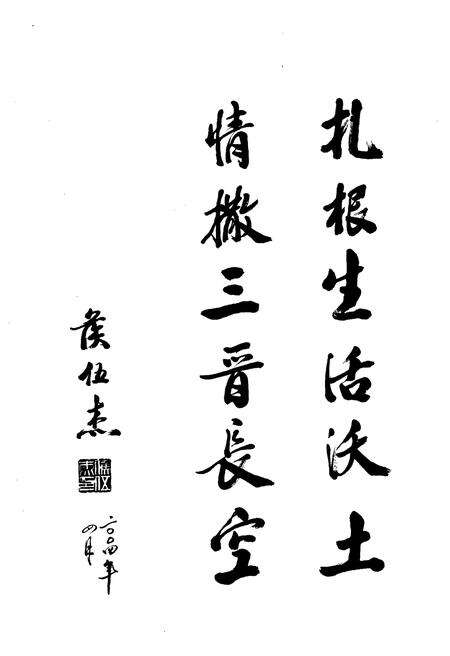 扎根生活沃土
情撒三晋長空
侯伍杰
二〇〇四年
四月